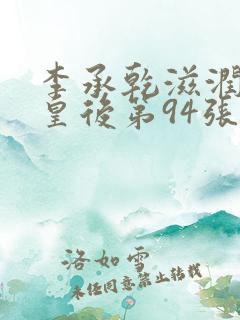 李承乾滋潤
皇後第94張
洛如雪
未经同意禁止转载